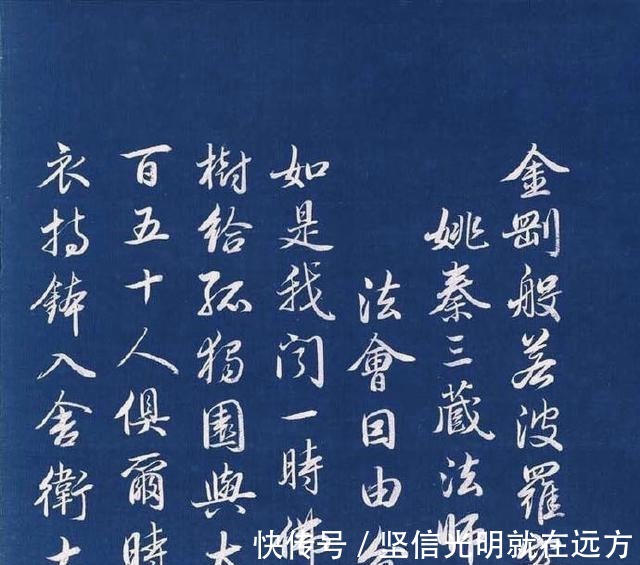 金剛般若波羅
姚秦三蔵法師
法會因由
如是我闻一時佛
樹給孤獨園與大
百五十人俱爾時
衣持鉢入舍衛大
快传号／坚信光明就在远方